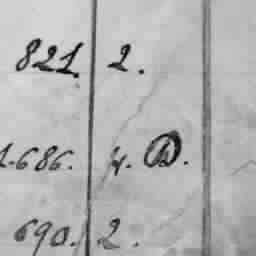 821. 2.
1.686. 4.
690. 2.